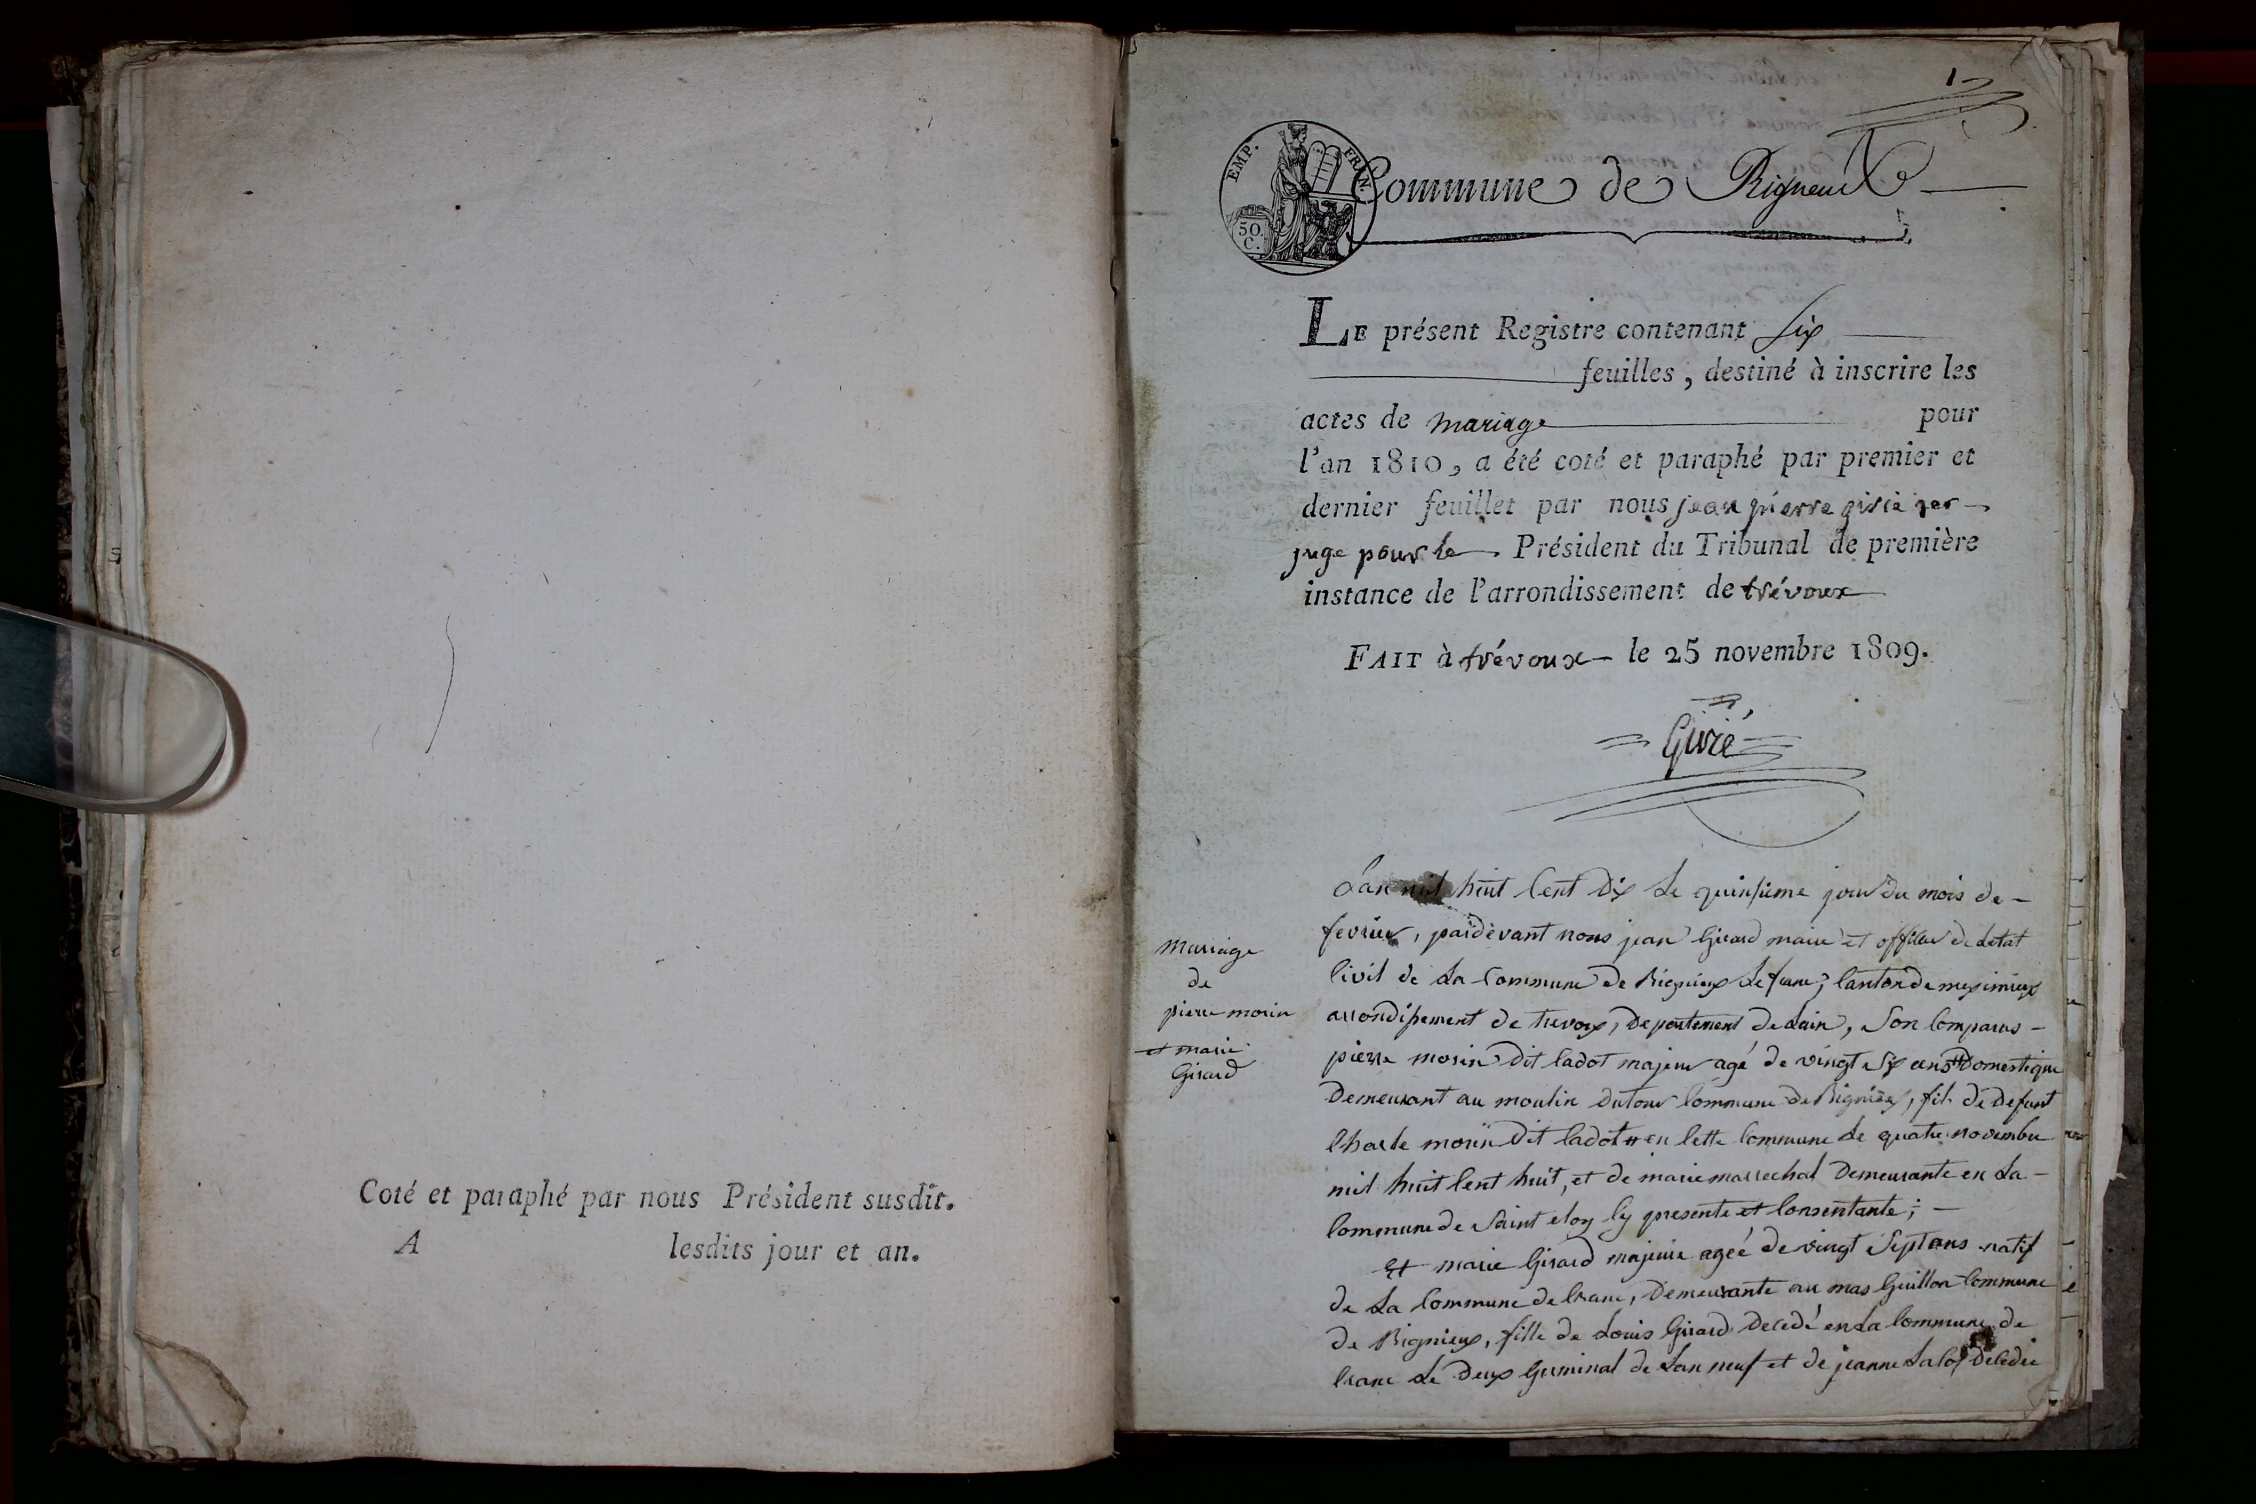 Coté et paraphé par nous Président susdit.
A lesdits jour et an.
1
EMP. FRAN.
50
C.
Commune de Rigneux
LE présent Registre contenant six
feuilles, destiné à inscrire les
actes de mariage pour
l'an 1810, a été coté et paraphé par premier et
dernier feuillet par nous jean pierre givié
juge pour le Président du Tribunal de première
instance de l'arrondissement de trévoux
FAIT à trévoux le 25 novembre 1809.
Givié
Mariage
de
pierre morin
et marie
Girard
L'an mil huit Cent Dix Le quinsieme jour Du mois de
fevrier, pardevant nous jean Girard maire et officier de Letat
Civil de La Commune de Rignieux Le franc, Canton de meximieux
arrondissement de trevoux, Departement de Lain, Son Comparus
pierre morin Dit Cadot majeur agé de vingt Six ans # Domestique
Demeurant au moulin Dutour Commune de Rignieux, fils de Defunt
Charle morin Dit Cadot # en Cette Commune Le quatre novembre
mil huit Cent huit, et de marie marrechal Demeurante en La
Commune de Saint eloy Cy presente et Consentante;
Et marie Girard majeure ageé de vingt Sept ans natif
de La Commune de Crane, Demeurante au mas Guillon Commune
de Rignieux, fille de Louis Girard Decedé en La Commune de
Crane Le Deux Germinal de Lan neuf et de jeanne Decedée